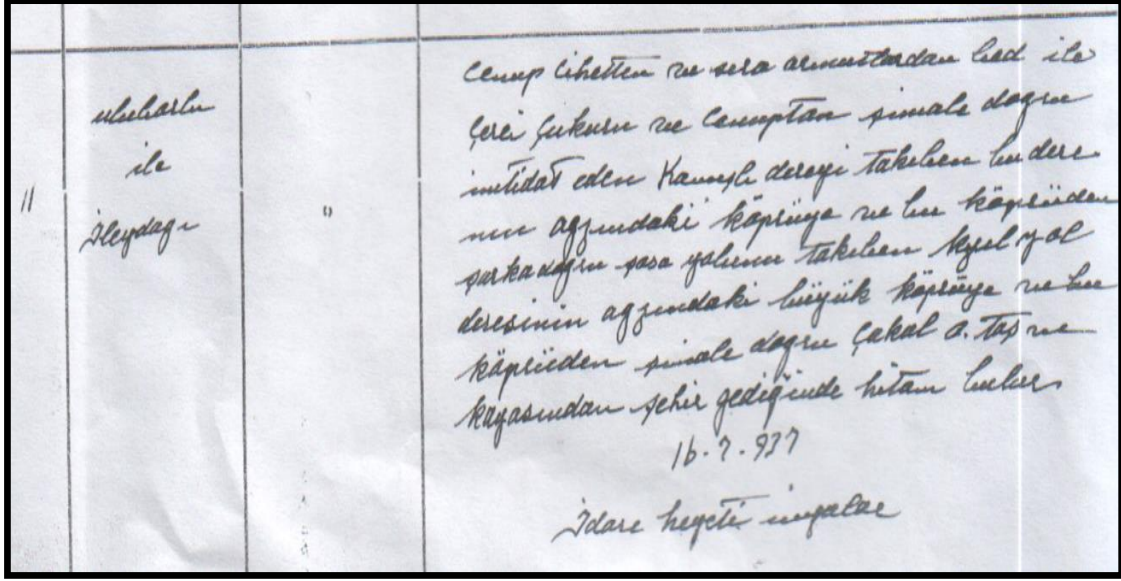 uluborlu
ile
İleydagı
11
"
Cenup Cihetten ve sıra armutlardan hed ile
Çerci Çukuru ve Cenuptan şimale dogru
imtidat eden Kamışlı dereyi takiben bu dere
nın agzındaki köprüye ve bu köprüden
şarka dogru şosa yolunu takiben kızıl yol
deresinin agzındaki büyük köprüye ve bu
köprüden şimale dogru Çakal o. taş ve
kayasından şehir gediğinde hitam bulur.
16.7.937
İdare heyeti imzalar